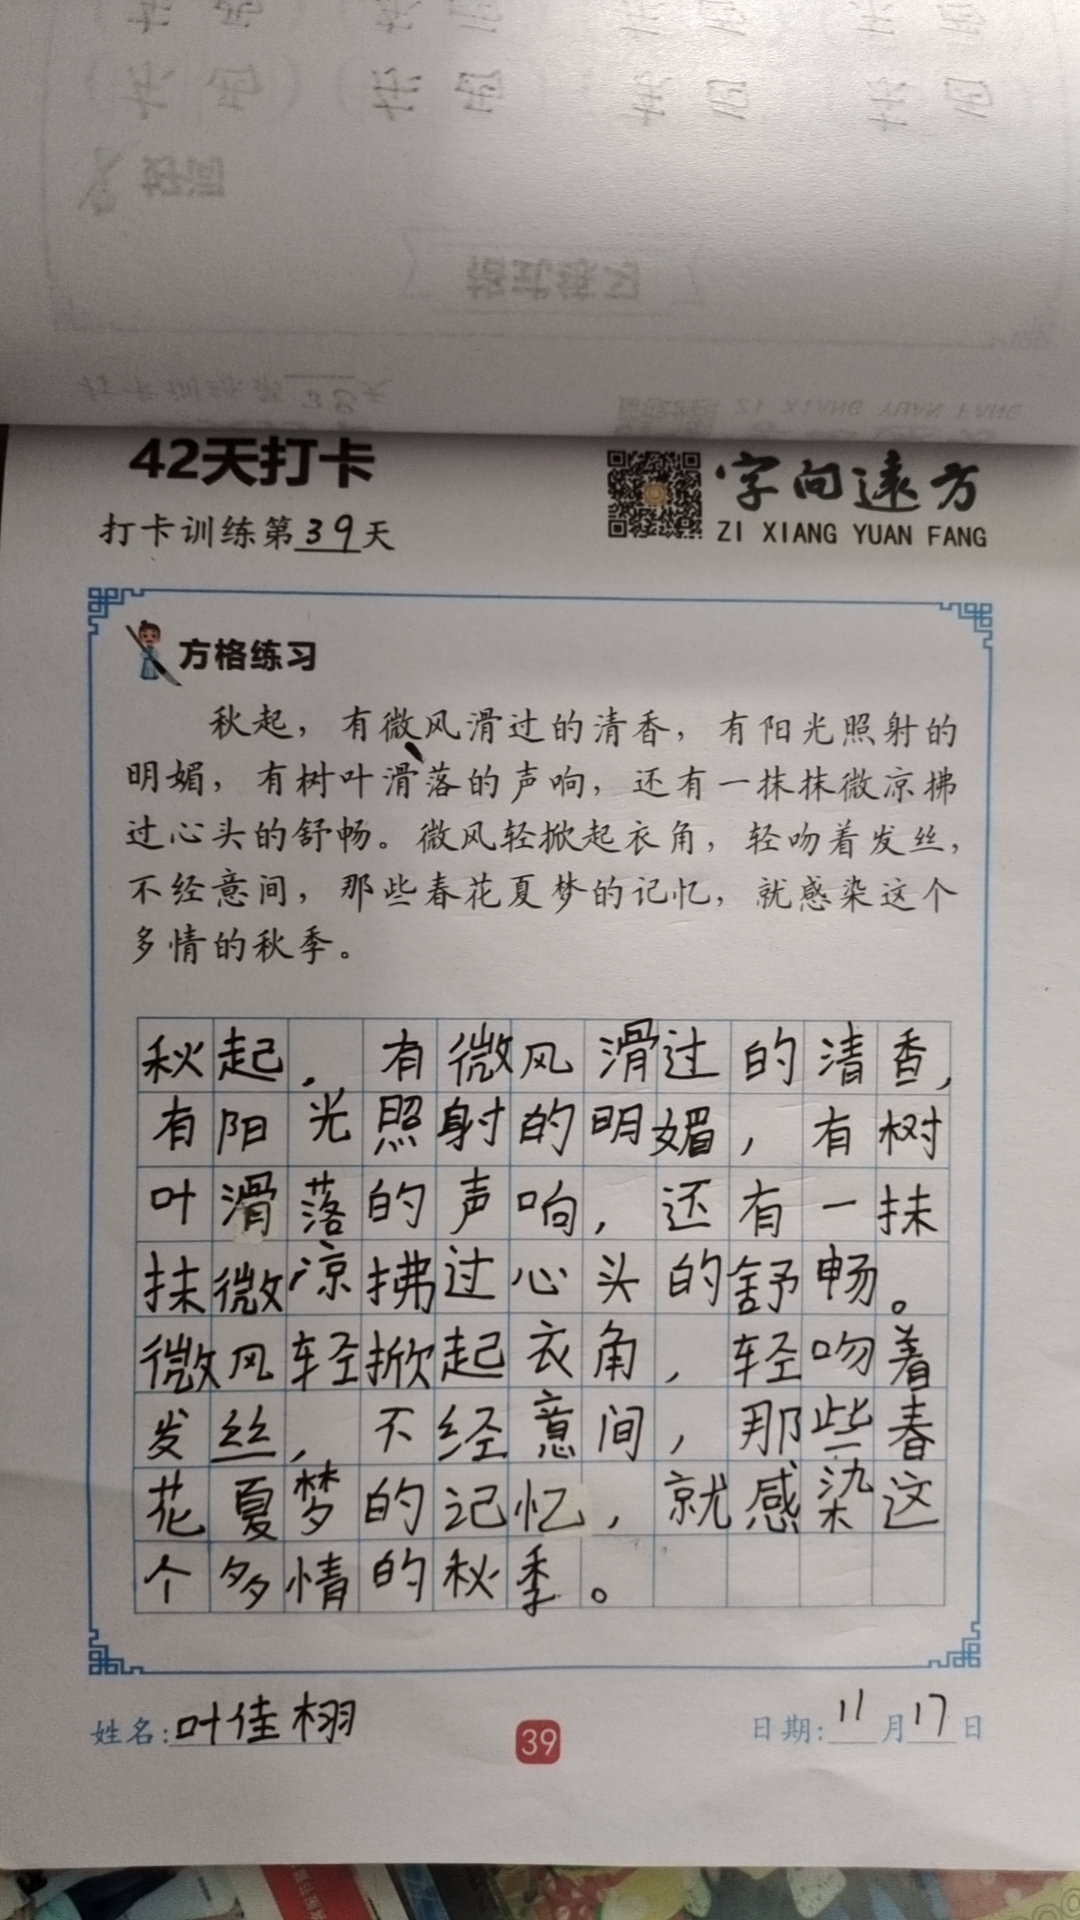 42天打卡
打卡训练第39天
字向远方
ZI XIANG YUAN FANG
方格练习
秋起，有微风滑过的清香，有阳光照射的
明媚，有树叶滑落的声响，还有一抹抹微凉拂
过心头的舒畅。微风轻掀起衣角，轻吻着发丝，
不经意间，那些春花夏梦的记忆，就感染这个
多情的秋季。
秋起，有微风滑过的清香，
有阳光照射的明媚，有树
叶滑落的声响，还有一抹
抹微凉拂过心头的舒畅。
微风轻掀起衣角，轻吻着
发丝，不经意间，那些春
花夏梦的记忆，就感染这
个多情的秋季。
姓名:叶佳栩
39
日期:11月17日